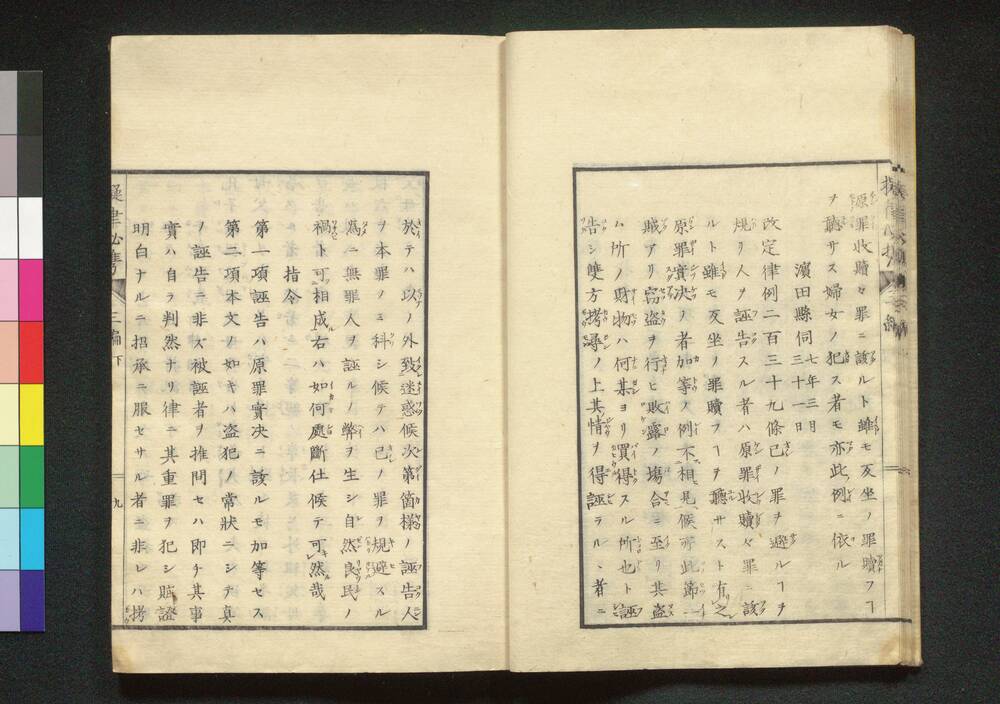 原罪收贖スル罪ニ該ルト雖モ反坐ノ罪贖フヿ
ヲ聽サス婦女ノ犯ス者モ亦此例ニ依ル
濱田縣伺 七年三月三十一日
改定律例二百三十九條己ノ罪ヲ避ルヿヲ
規リ人ヲ誣告スル者ハ原罪收贖スル罪ニ該
ルト雖モ反坐ノ罪贖フヿヲ聽サスト有之
原罪實決ノ者加等ノ例不相見候所此節ニ
賊アリ窃盜ヲ行ヒ敗露ノ塲合ニ至リ其盜
ハ所ノ財物ハ何某ヨリ買得スル所也ト誣
告シ雙方拷尋ノ上其情ヲ得誣ラルヽ者ニ
於テハ以ノ外致迷惑候次第箇樣ノ誣告人
ヲ本罪ノミ科シ候テハ己ノ罪ヲ規避スル
爲ニ無罪人ヲ誣ルノ弊ヲ生シ自然良民ノ
禍ト可相成右ハ如何處斷仕候テ可然哉
指令
第一項誣告ハ原罪實決ニ該ルモ加等セス
第二項本文ノ如キハ盜犯ノ常狀ニシテ眞
ノ誣告ニ非ス被誣者ヲ推問セハ即チ其事
實ハ自ラ判然ナリ律ニ其重罪ヲ犯シ贓證
明白ナルニ招承ニ服セサル者ニ非レハ拷
擬律必携
三編 下
九